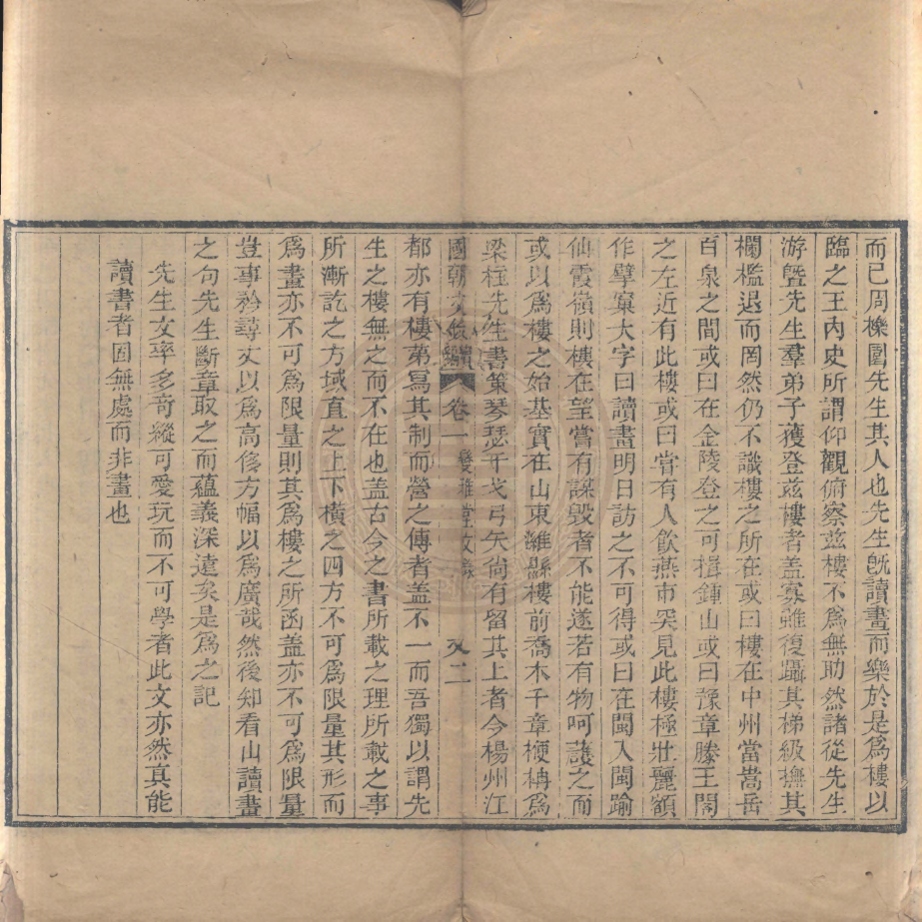 而已周櫟園先生其人也先生既讀畫而樂於是爲樓以
臨之王內史所謂仰觀俯察兹樓不爲無助然諸從先生
游曁先生羣弟子獲登兹樓者盖寡雖復躡其梯級撫其
欄檻退而罔然仍不識樓之所在或曰樓在中州當嵩岳
百泉之間或曰在金陵登之可揖鍾山或曰豫章滕王閣
之左近有此樓或曰嘗有人飲燕市突見此樓極壯麗額
作擘窠大字曰讀畫明日訪之不可得或曰在閩入閩踰
仙霞嶺則樓在望嘗有謀毀者不能遂若有物呵護之而
或以爲樓之始基實在山東濰縣樓前喬木千章楩柟爲
梁柱先生書策琴瑟干戈弓矢尙有留其上者今楊州江
國朝文錄續 卷一 雙 堂文錄 二
都亦有樓第寫其制而營之傳者盖不一而吾獨以謂先
生之樓無之而不在也盖古今之書所載之理所載之事
所漸訖之方域直之上下橫之四方不可爲限量其形而
爲畫亦不可爲限量則其爲樓之所函盖亦不可爲限量
豈事矜尋丈以爲高侈方幅以爲廣哉然後知看山讀畫
之句先生斷章取之而蘊義深遠矣是爲之記
先生文率多奇縱可愛玩而不可學者此文亦然真能
讀書者固無處而非畫也